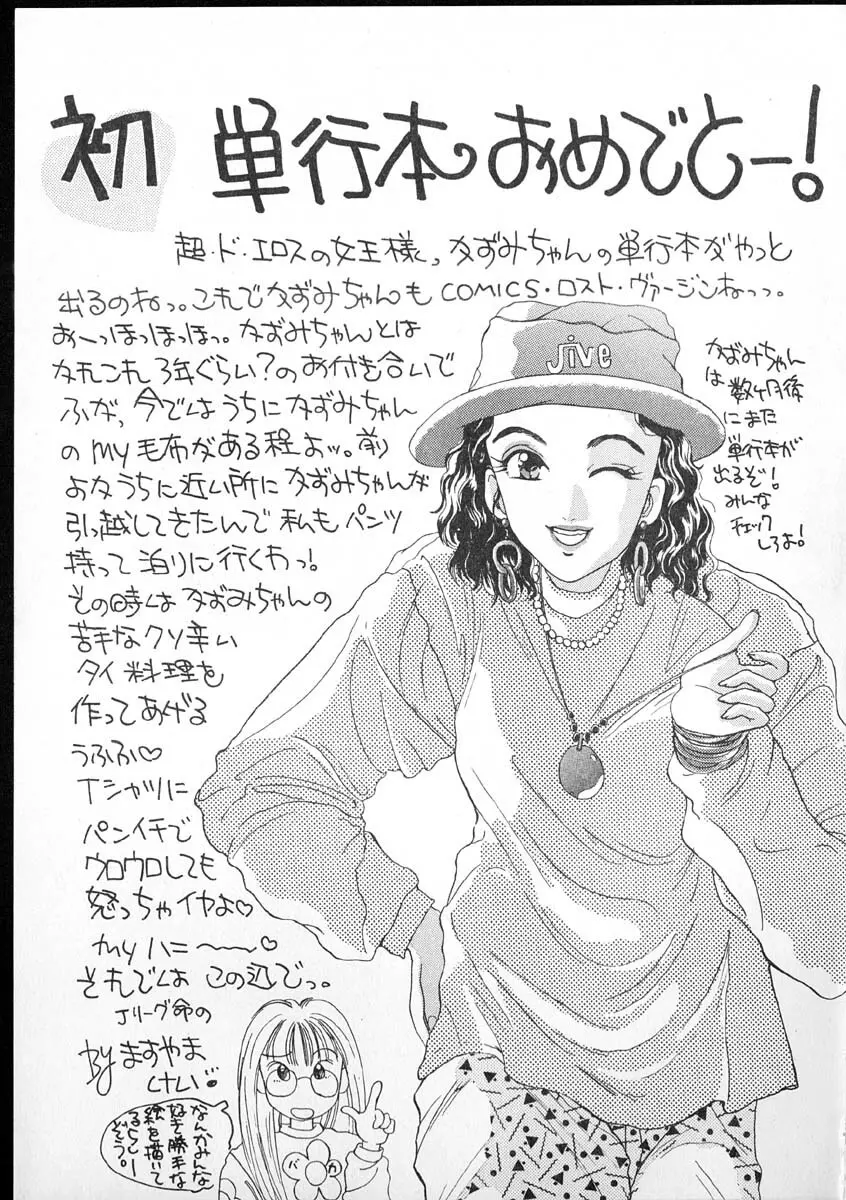 初 単行本おめでとー!
超・ド・エロスの女王様、かずみちゃんの単行本がやっと
出るのねっ。これでかずみちゃんも COMICS・ロスト・ヴァージンねっっ。
お〜っほっほっほっ。かずみちゃんとは
かれこれ3年ぐらい?のお付き合いで
ふが、今ではうちにかずみちゃん
のmy毛布がある程よッ。前
よかうちに近い所にかずみちゃんが
引っ越してきたんで私もパンツ
持って泊りに行くわっ!
その時はかずみちゃんの
苦手なクソ辛い
タイ料理を
作ってあげる
うふふ♡
Tシャツに
パンイチで
ウロウロしても
怒っちゃイヤよ♡
myハニ〜〜♡
それでは この辺でっ。
Jリーグ命の
by ますやま
けい
jive
かずみちゃん
は数ヶ月後
にまた
単行本が
出るぞ!
みんな
チェック
しろよ!
なんかみんな
好き勝手な
絵を描いて
るらしー
ぞぞう。
バカ